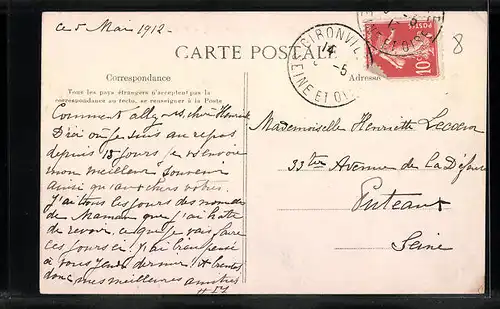 ce 5 Mai 1912.
CARTE POSTALE
Correspondance
Tous les pays étrangers n'acceptent pas la
correspondance au recto, se renseigner à la Poste
Adresse
GIRONVIL
SEINE ET OI
14
5
10
8
Comment allez-vs, chère Henriette
D'ici où je suis au repos
depuis 15 jours je vs envoie
mon meilleur souvenir
ainsi qu'aux chers vôtres.
J'ai tous les jours des nouvelles
de Maman que j'ai hâte
de revoir, ce que je vais faire
ces jours ci! J'ai bien pensé
à vous dernier! à bientôt
donc mes meilleures amitiés
Mademoiselle Henriette
33 ter Avenue de La Défense
Puteaux
Seine